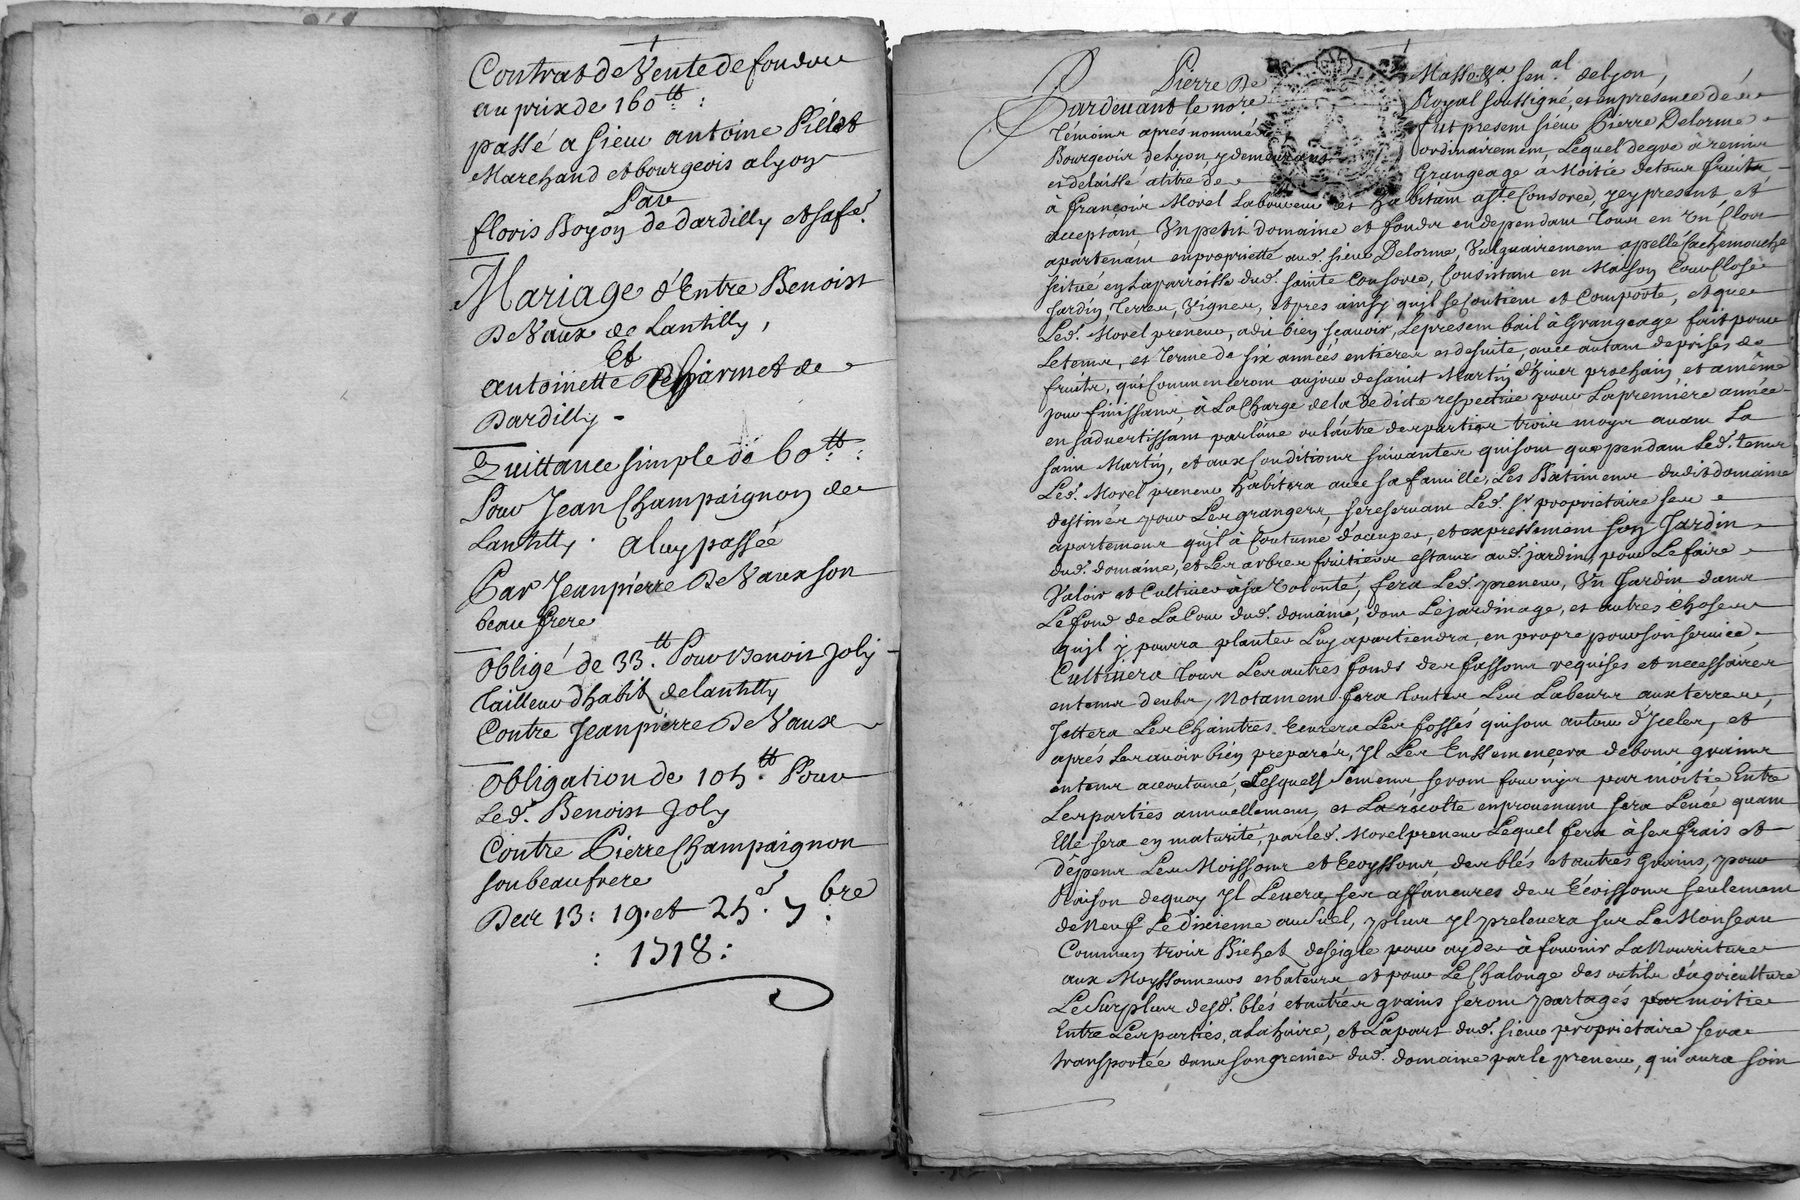 Contrat de Vente de fondue
au prix de 160 tt :
passé a sieur antoine Pillet
Marchand et bourgeois a lyon
Par
floris Boyon de dardilly et sa fe.
Mariage d'Entre Benoist
De Vaux de Lantilly,
Et
antoinette Decharmet de
Dardilly -
Quittance simple de 60 tt :
Pour Jean Champaignon de
Lantilly . a luy passée
Par Jeanpierre De Vaux son
beau frere
obligé de 33 tt. Pour Benoist Joly
Tailleur d'habit de lantilly
Contre Jeanpierre De Vaux
obligation de 105 tt. Pour
Led. Benoist Joly
Contre Pierre Champaignon
son beaufrere
Des 13 : 19. et 25e. 7bre
: 1718 :
Pierre De Masso. &a. sen.al de lyon,
Pardevant le no.re Royal soussigné, et en presence de
Témoins aprés nommés fut present sieur Pierre Delorme
Bourgeois de Lyon, y demeurant ordinairement, Lequel de gré à remis
et delaissé a titre de Grangeage à Moitié de tous fruits
à François Morel Laboureur et habitant a Ste Consorce, icy present et
acceptant, Un petit domaine et fonds en dependant Tous en Un Clos
apartenant en proprietté aud. sieur Delorme, Vulguairement apellé Cachemouche
scitué en La parroisse dud. sainte Consorce, Consistant en Maison Cour Close
Jardin, Terres, Vignes, et pres ainsy qu'il se Contient et Comporte, et que
Led. Morel preneur, a dit bien sçavoir, Le present bail à Grangeage fait pour
Le tems, et Terme de six années entieres et de suite, avec autant de prises de
fruits, qui Commenceront au jour de saint Martin d'hiver prochain, et a même
jour finissant, à La Charge de la de dicte respective pour La premiere année
en s'advertissant par l'une ou l'autre des parties trois moys avant La
saint Martin, et aux Conditions suivantes qui sont que pendant Led. tems
Led. Morel preneur habitera avec sa famille, Les Bâtimens dudit domaine
destinés pour Les grangers, se reservant Led. Sr. proprietaire ses
apartemens qu'il à Coutume d'occuper, et expressement son Jardin
dud. domaine, et Les arbres fruitiers estant aud. jardin, pour Le faire
Valoir et Cultiver à sa Volonté, fera Led. preneur, Un Jardin dans
Le fond de La Cour dud. domaine, dont Le jardinage, et autres choses
qu'il y pourra planter Luy apartiendra, en propre pour son service,
Cultivera Tous Les autres fonds des fassons requises et necessaires
en tems deubs, Notament fera toutes Les Labeurs aux terres,
Jettera Les Chaintres. Ecurera Les fossés qui sont autour d'Icelles, et
aprés Les avoir bien preparés, Il Les Enssemencera de bons grains
en tems accoutumé, Lesquels semens seront fournis par moitié Entre
Les parties annuellement, et La récolte en provenant sera Levée quant
Elle sera en maturité, par led. Morel preneur Lequel fera à ses frais et
dépens Les Moissons et Ecoyssons, des blés et autres Grains, pour
Raison de quoy Il Levera ses affaneures des Ecoissons seulement
de Neuf Le dixieme au suel, plus Il prelevera sur Le Monseau
Commun trois Bichet de seigle pour ayder à fournir La Nourriture
aux Moyssonneurs et bateurs et pour Le Chalonge des outils d'agriculture
Le surplus desd. blés et autres grains seront partagés par moitié
Entre Les parties, a La haire, et La part dud. sieur proprietaire sera
transportée dans son grenier dud. domaine par le preneur, qui aura soin